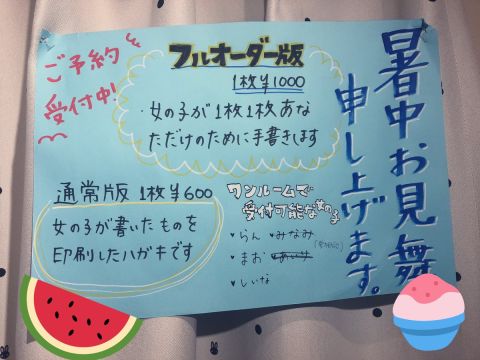 暑中お見舞
申し上げます。
ご予約
受付中!
フルオーダー版
1枚¥1000
・女の子が1枚1枚あな
ただけのために手書きします
通常版 1枚¥600
女の子が書いたものを
印刷したハガキです
ワンルームで
受付可能な女の子
♥らん ♥みなみ
♥まお
♥しいな